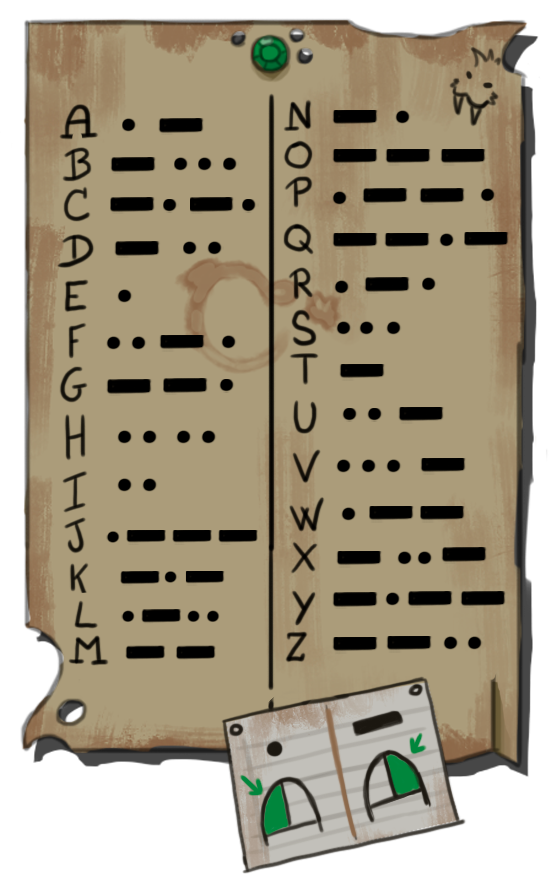 A • —
B — • • •
C — • — •
D — • •
E •
F • • — •
G — — •
H • • • •
I • •
J • — — —
K — • —
L • — • •
M — —
N — •
O — — —
P • — — •
Q — — • —
R • — •
S • • •
T —
U • • —
V • • • —
W • — —
X — • • —
Y — • — —
Z — — • •
• —